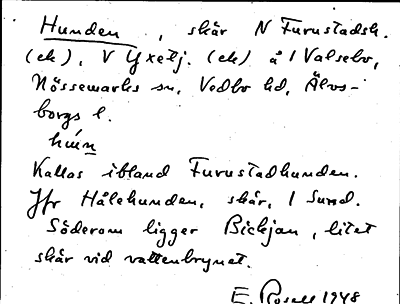 Hunden, skär N Furustadsh.
(ek), V Yxetj. (ek) å 1 Valsebo,
Nössemarks sn, Vedbo hd, Älvs-
borgs l.
hu̇́n
Kallas ibland Furustadhunden.
Jfr Hålehunden, skär, 1 Sund.
Söderom ligger Bickjan, litet
skär vid vattenbrynet.
E. Rosell 1948